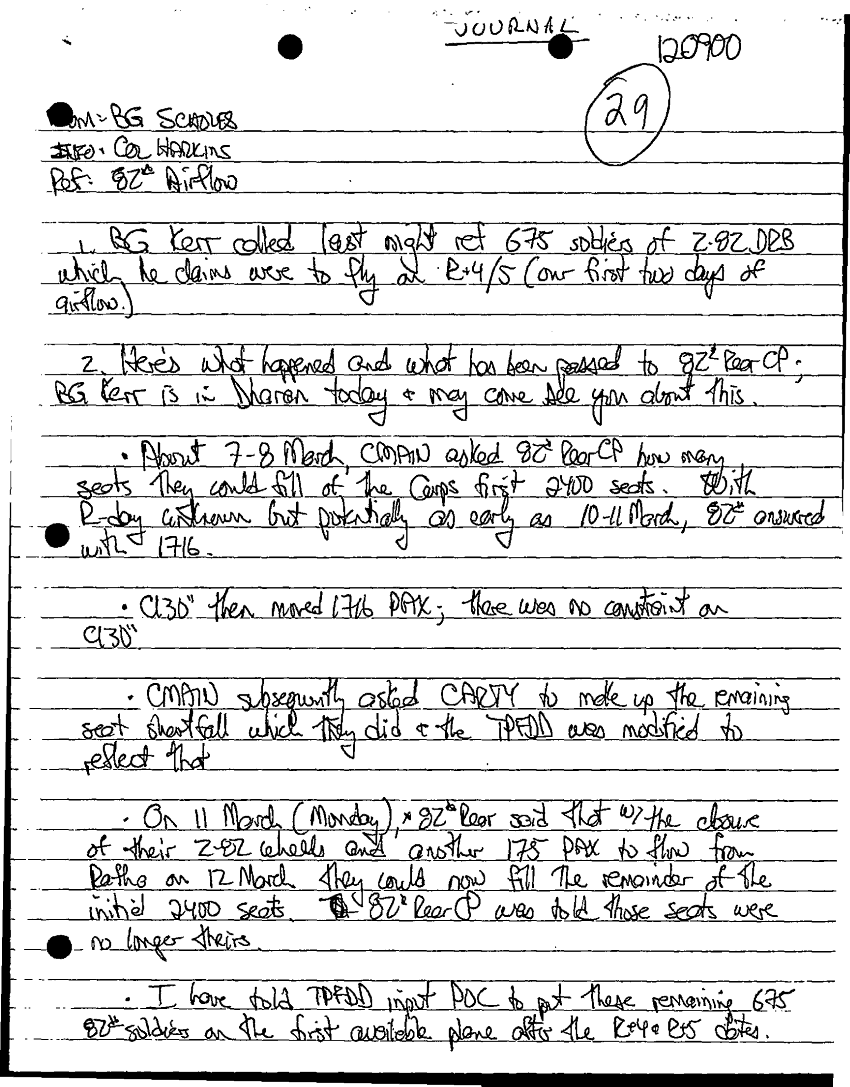 JOURNAL
120900
29
OM: BG SCHOLES
INFO: COL HARKINS
Ref: 82d Airflow
1. BG Kerr called last night ref 675 soldiers of 2-82 DRB
which he claims were to fly on R+4/5 (our first two days of
airflow.)
2. Here's what happened and what has been passed to 82d Rear CP;
BG Kerr is in Dharan today & may come see you about this.
· About 7-8 March, CMAIN asked 82d Rear CP how many
seats they could fill of the Corps first 2400 seats. With
R-day unknown but potentially as early as 10-11 March, 82d answered
with 1716.
· C130" then moved 1716 PAX; there was no constraint on
C130"
· CMAIN subsequently asked CARTY to make up the remaining
seat shortfall which they did & the TPFDD was modified to
reflect that
· On 11 March (Monday), 82d Rear said that w/ the closure
of their 2-82 wheels and another 175 PAX to flow from
Rafha on 12 March they could now fill the remainder of the
initial 2400 seats. 82d Rear CP was told those seats were
no longer theirs.
· I have told TPFDD input POC to put these remaining 675
82d soldiers on the first available plane after the R+4 & R+5 dates.